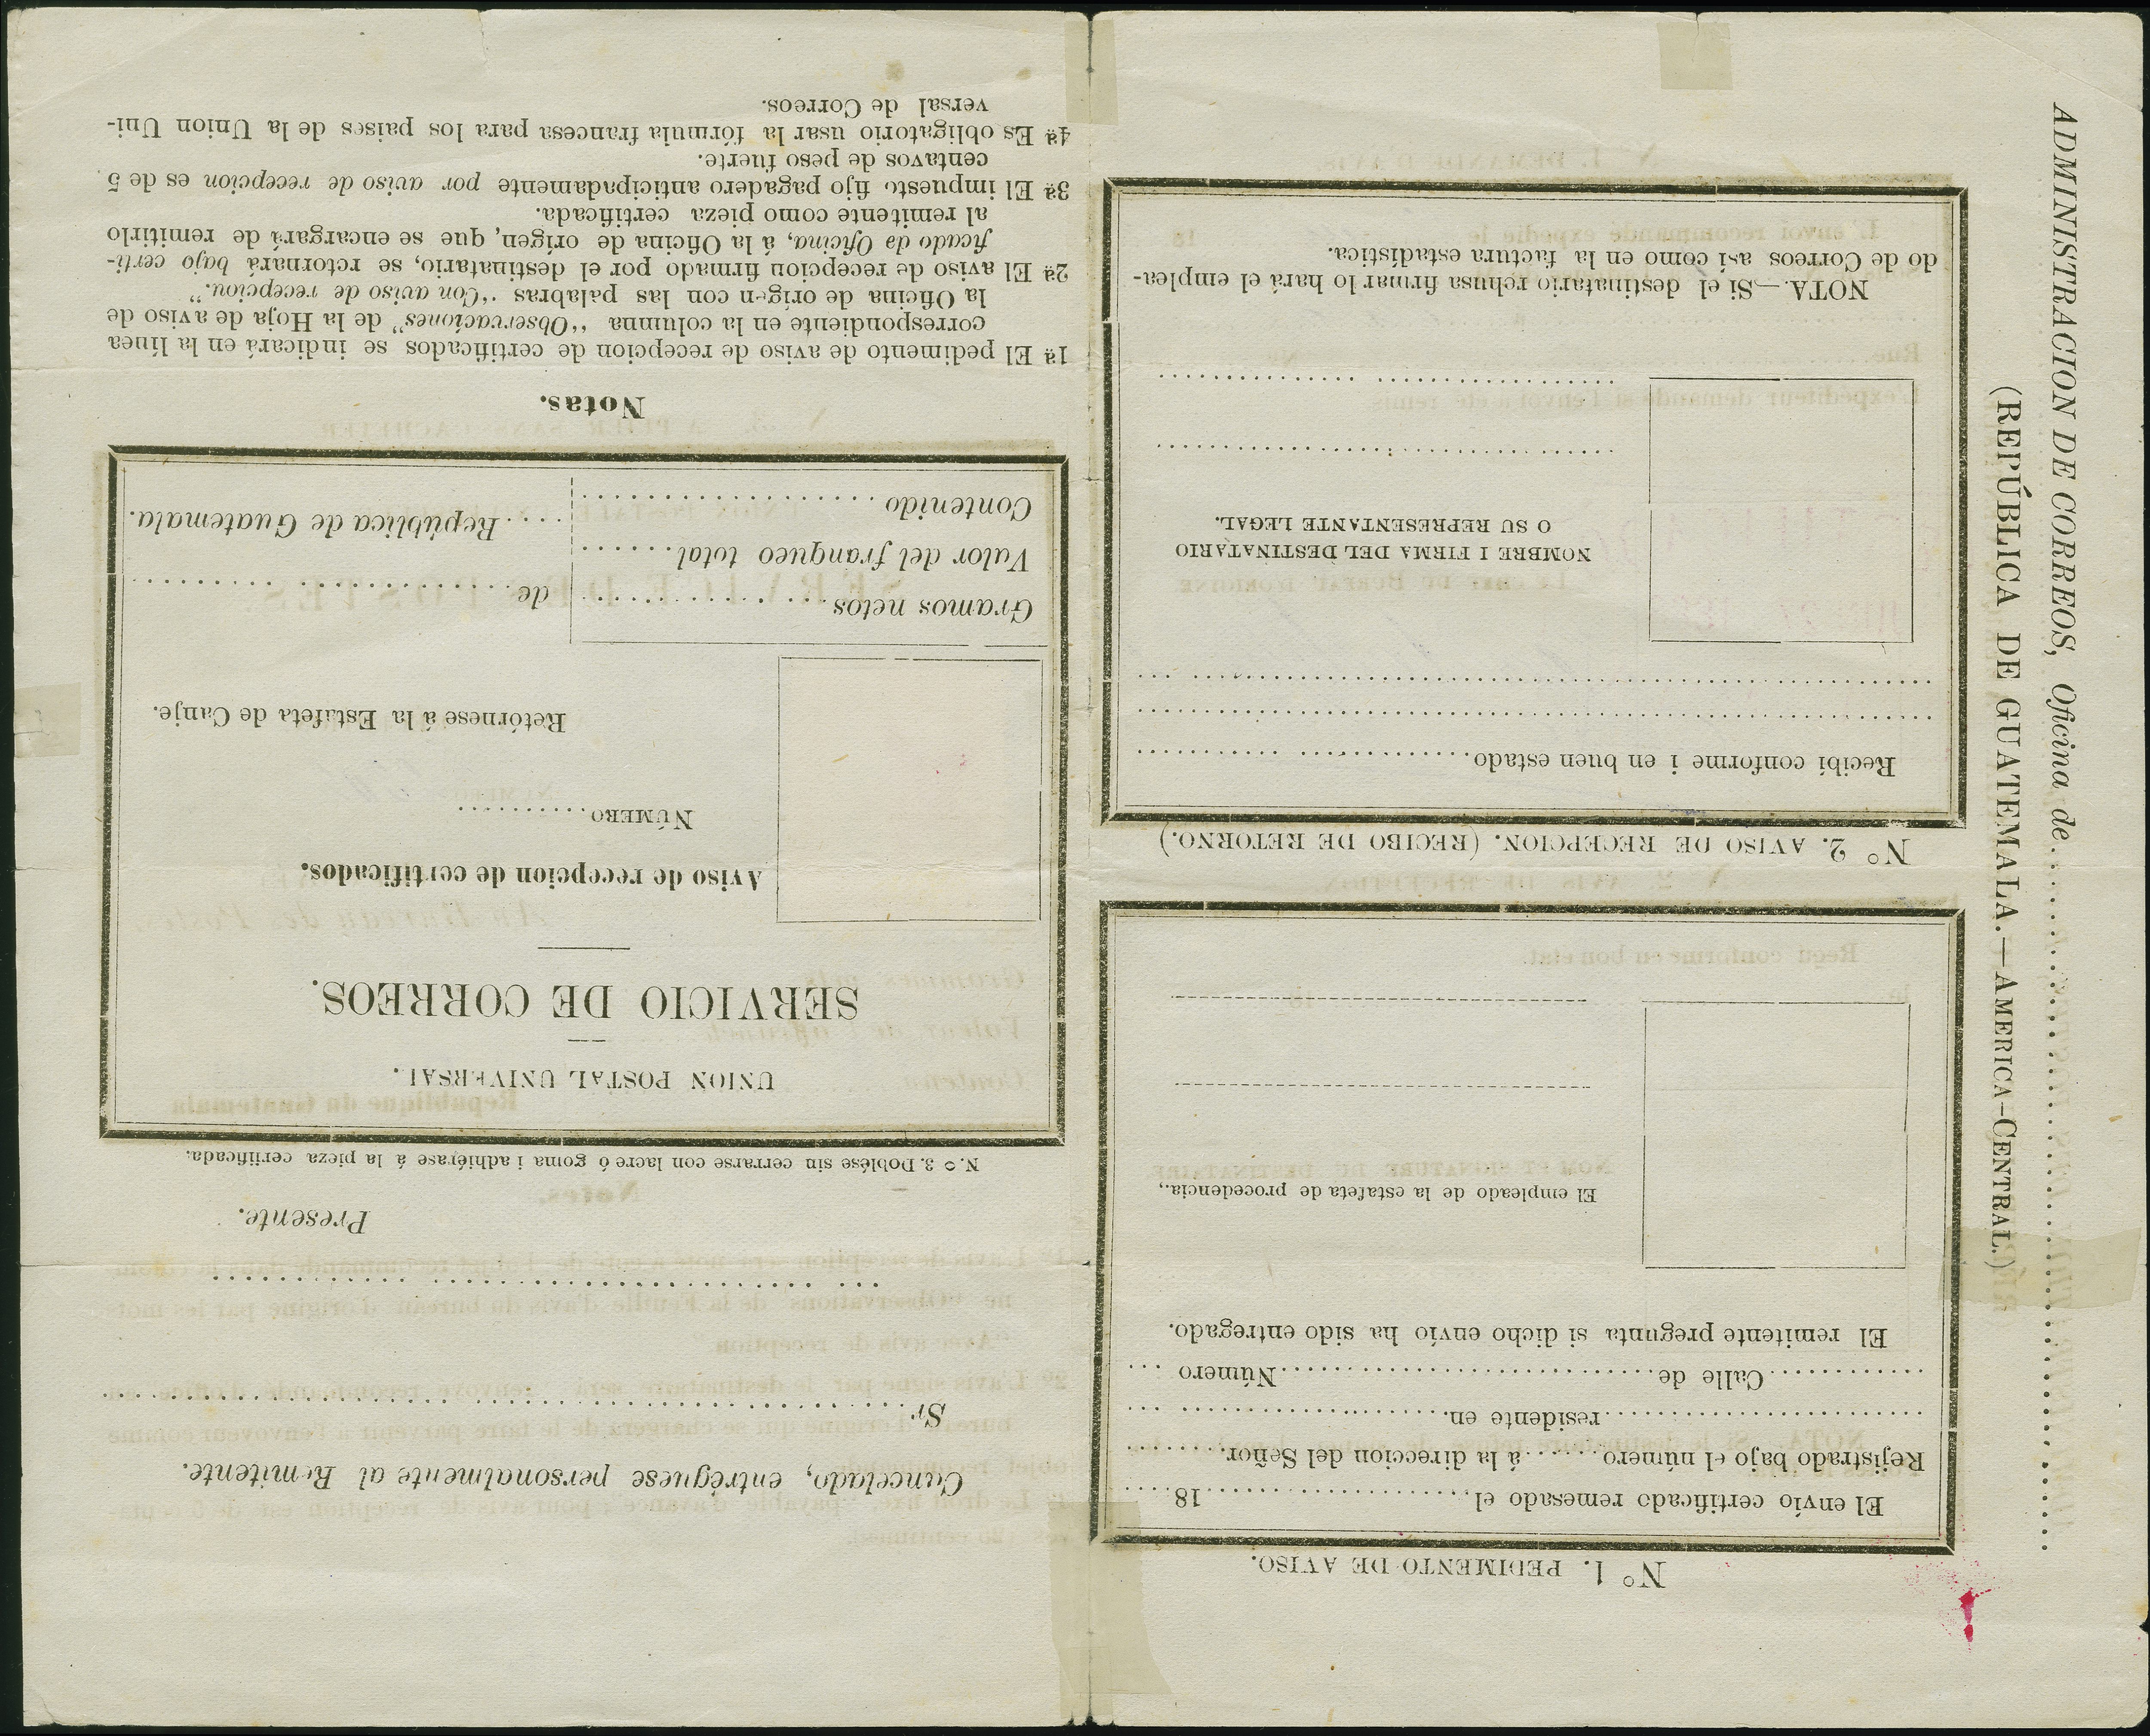 ADMINISTRACION DE CORREOS, Oficina de
(REPÚBLICA DE GUATEMALA.—AMERICA-CENTRAL.)
Nº 1. PEDIMENTO DE AVISO.
El envío certificado remesado el 18
Rejistrado bajo el número á la direccion del Señor
residente en
Calle de Número
El remitente pregunta si dicho envío ha sido entregado.
El empleado de la estafeta de procedencia,
Nº 2. AVISO DE RECEPCION. (RECIBO DE RETORNO.)
Recibí conforme i en buen estado
NOMBRE I FIRMA DEL DESTINATARIO
O SU REPRESENTANTE LEGAL.
NOTA.—Si el destinatario rehusa firmar lo hará el emplea-
do de Correos así como en la factura estadística.
Cancelado, entréguese personalmente al Remitente.
Sr.
Presente.
N.º 3. Doblése sin cerrarse con lacre ó goma i adhiérase á la pieza certificada.
UNION POSTAL UNIVERSAL.
SERVICIO DE CORREOS.
Aviso de recepcion de certificados.
NÚMERO
Retórnese á la Estafeta de Canje.
Gramos netos
Valor del franqueo total
Contenido
de
República de Guatemala.
Notas.
1ª El pedimento de aviso de recepcion de certificados se indicará en la línea
correspondiente en la columna "Observaciones" de la Hoja de aviso de
la Oficina de orígen con las palabras "Con aviso de recepcion."
2ª El aviso de recepcion firmado por el destinatario, se retornará bajo certi-
ficado de Oficina, á la Oficina de orígen, que se encargará de remitirlo
al remitente como pieza certificada.
3ª El impuesto fijo pagadero anticipadamente por aviso de recepcion es de 5
centavos de peso fuerte.
4ª Es obligatorio usar la fórmula francesa para los paises de la Union Uni-
versal de Correos.